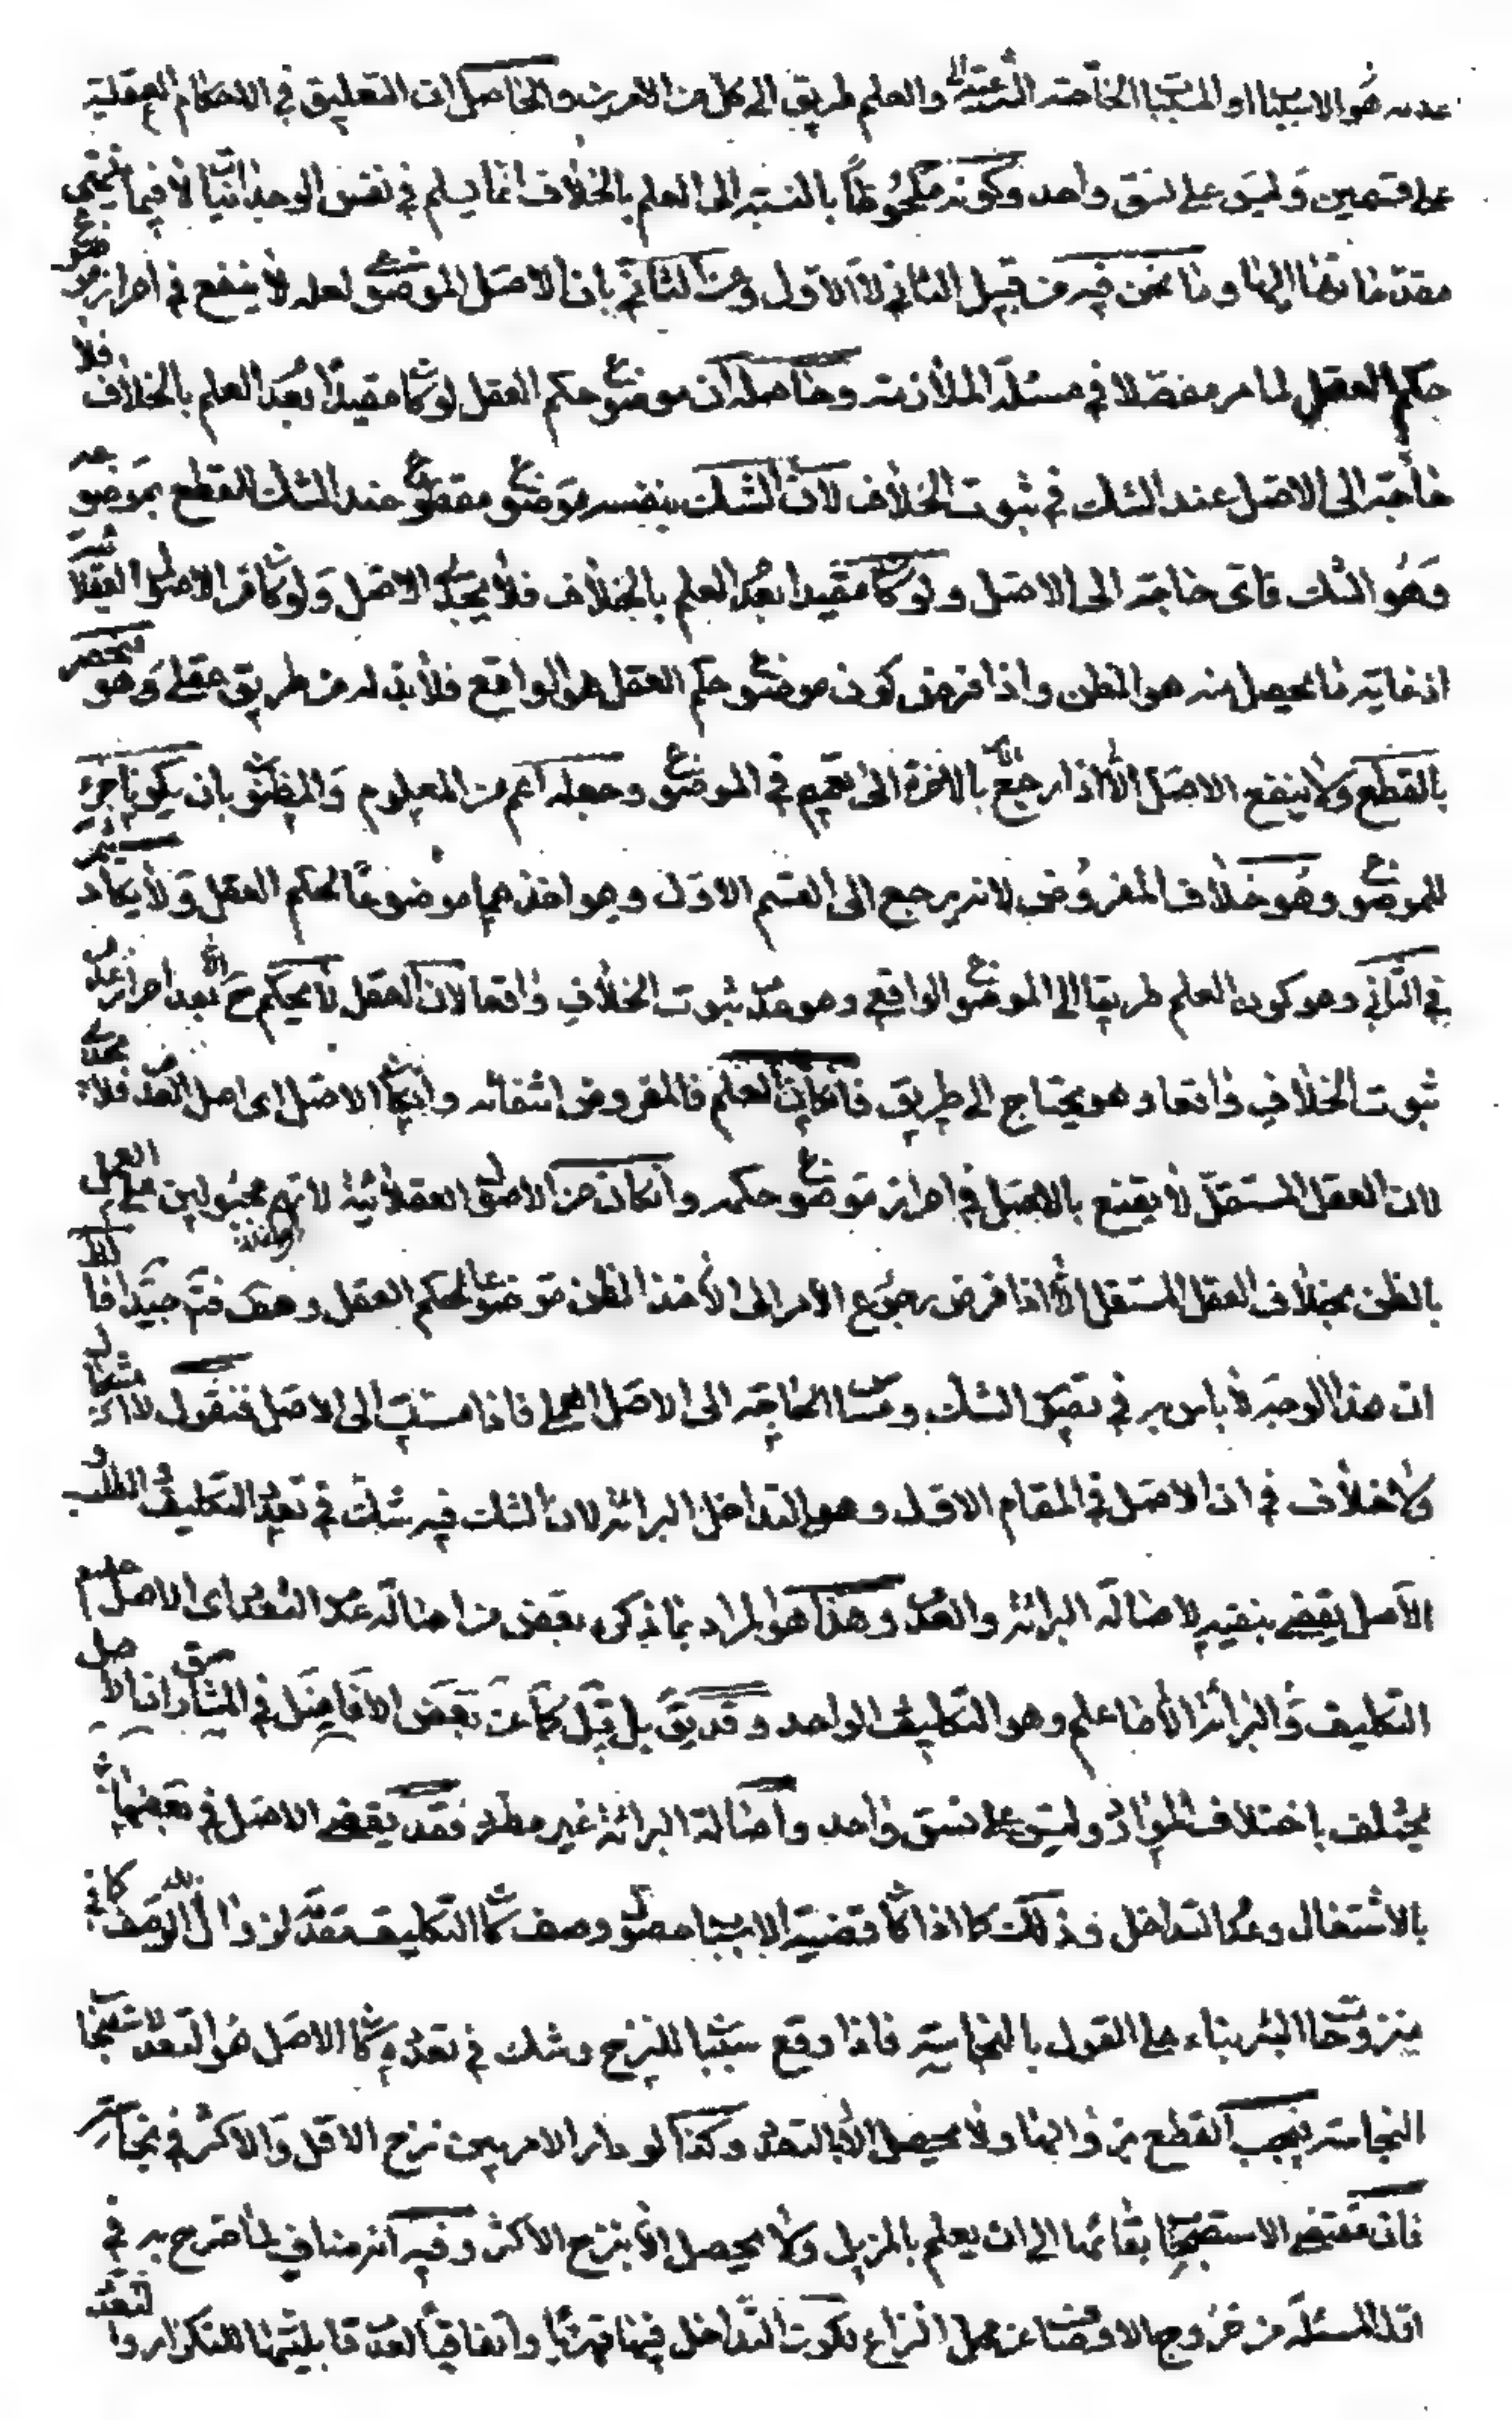 عدمه هو الاسباب او المسببات الخاصة الشرعية والعلم طريق الى كل من الامرين والحاصل ان التعليق في الاحكام العقلية
على قسمين وليس على نسق واحد وكونه ملحوظا بالنسبة الى العلم بالخلاف انما يسلم في نفس الوجدانيات لا فيما ينتهى
مقدماتها اليها وما نحن فيه من قبيل الثاني لا الاول وعن الثاني بان الاصل الموضوعي لعله لا ينفع في احراز موضوع
حكم العقل لما مر مفصلا في مسئلة الملازمة وحاصله ان موضوع حكم العقل لو كان مقيدا بعدم العلم بالخلاف فلا
حاجة الى الاصل عند الشك في ثبوت الخلاف لان الشك بنفسه موضوع مقطوع عند الشك للقطع بموضوعه
وهو الشك فاى حاجة الى الاصل ولو كان مقيدا بعدم العلم بالخلاف فلا يجدى الاصل ولو كان من الاصول العقلائية
اذ غاية ما يحصل منه هو الظن واذا فرض كون موضوع حكم العقل هو الواقع فلا بد له من طريق عقلى وهو منحصر
بالقطع ولا ينفع الاصل الا اذا رجع بالاخرة الى تعميم في الموضوع وجعله اعم من المعلوم والمظنون بان يكونا جزئى
للموضوع وهو خلاف المفروض لانه يرجع الى القسم الاول وهو اخذهما موضوعا لحكم العقل ولا يكاد يتم
في الثاني وهو كون العلم طريقا الى الموضوع الواقعى وهو عدم ثبوت الخلاف واقعا لان العقل لا يحكم ح الا بعد احراز عدم
ثبوت الخلاف واقعا وهو يحتاج الى طريق فان كان العلم فالمفروض انتفائه وان كان الاصل اى اصل العدم فلا يجدى
لان العقل المستقل لا يقنع بالاصل في احراز موضوع حكمه وان كان من الاصول العقلائية لانهم مجبولين على العمل
بالظن بخلاف العقل المستقل الا اذا فرض رجوع الامر الى الاخذ الظن موضوعا لحكم العقل وهو فتم جيدا
ان هذا الوجه لا باس به في تصوير الشك ومسا الحاجة الى الاصل العملى فاذا مست الى الاصل فنقول لا اشكال
ولا خلاف في ان الاصل في المقام الاول وهو التداخل البرائة لان الشك فيه شك في تعدد التكليف والطلب
الاصل يقضى بنفيه لاصالة البرائة والعدم وهذا هو المراد بما ذكره بعض من اصالة عدم التعدد اى الاصل عدم
التكليف والبرائة الا ما علم وهو التكليف الواحد وقد يق بل قيل كما عن بعض الافاضل في المشارق ان الاصل
يختلف باختلاف الموارد وليس على نسق واحد واصالة البرائة غير مطرد فقد يقضى الاصل في بعضها
بالاشتغال وعدم التداخل وذلك كما اذا كان قضية الاسباب حصول وصف كان التكليف مقدمة لزوال ذلك الوصف كما في
منزوحات البئر بناء على القول بالنجاسة فاذا وقع سببا للنزح وشك في تعدده كان الاصل هو التعدد لاستصحاب
النجاسة فيجب القطع بزوالها ولا يحصل الا بالتعدد وكذا لو دار الامر بين نزح الاقل والاكثر في نجاسة
فان مقتضى الاستصحاب بقائها الى ان يعلم بالمزيل ولا يحصل الا بنزح الاكثر وفيه انه مناف لما صرح به في
اول المسئلة من خروج الاوصاف عن محل النزاع لكون التداخل فيها قهريا واتفاقيا لعدم قابليتها للتكرار والتعدد